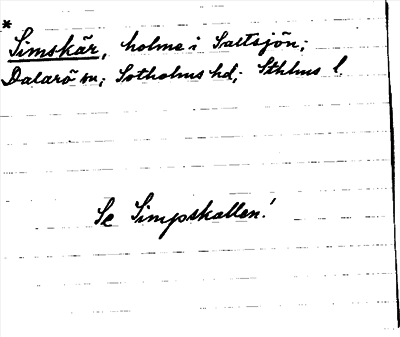 *
Simskär, holme i Saltsjön;
Dalarö sn; Sotholms hd; Sthlms l.
Se Simpskallen!